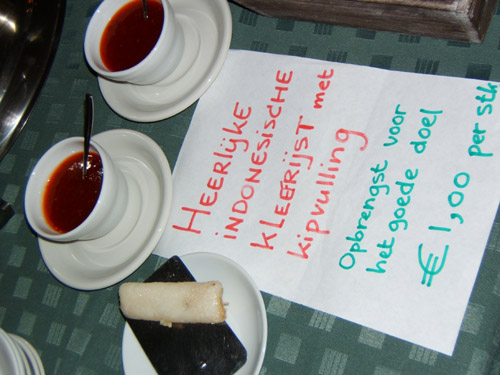 HEERLIJKE
INDONESISCHE
KLEEFRIJST met
kipvulling
Opbrengst voor
het goede doel
€ 1,00 per stk